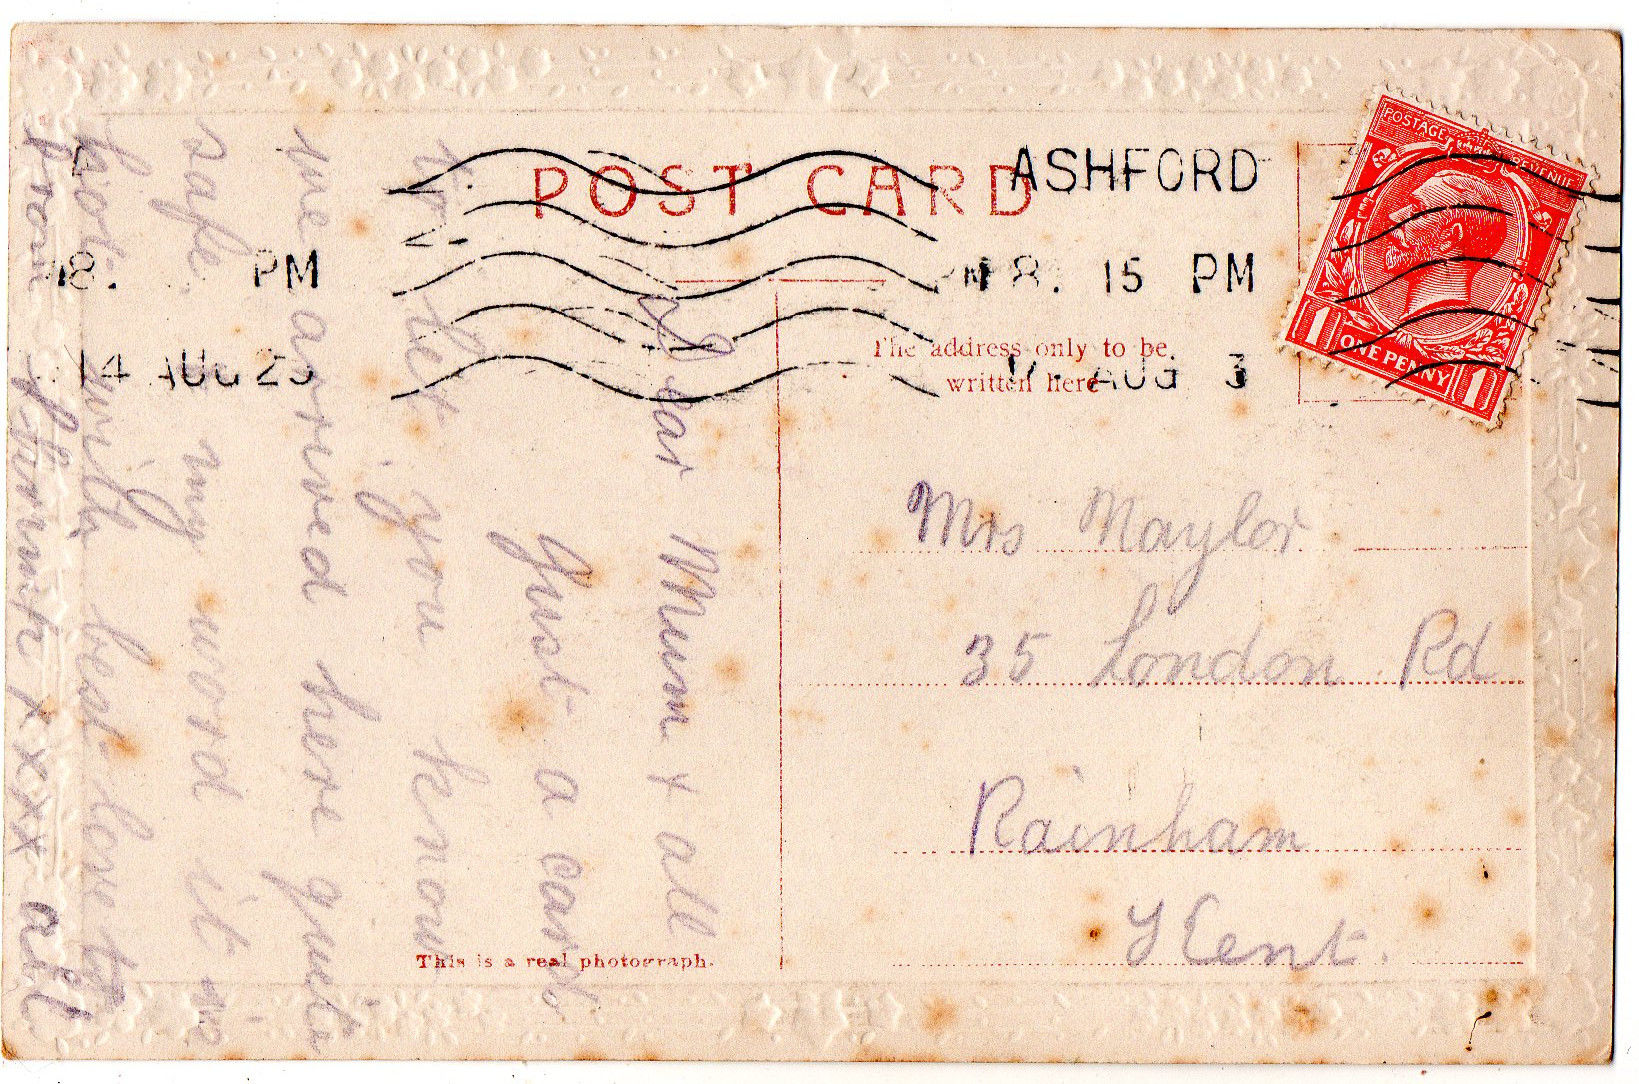 POST CARD
ASHFORD
8. 15 PM
AUG
8. PM
14 AUG 25
POSTAGE REVENUE
1 ONE PENNY 1
The address only to be
written here
Mrs Naylor
35 London Rd
Rainham
Kent.
This is a real photograph.
Dear Mum + all
Just a card
to let you know
we arrived here quite
safe. my word it is
hot. with best love to
from x xxx all